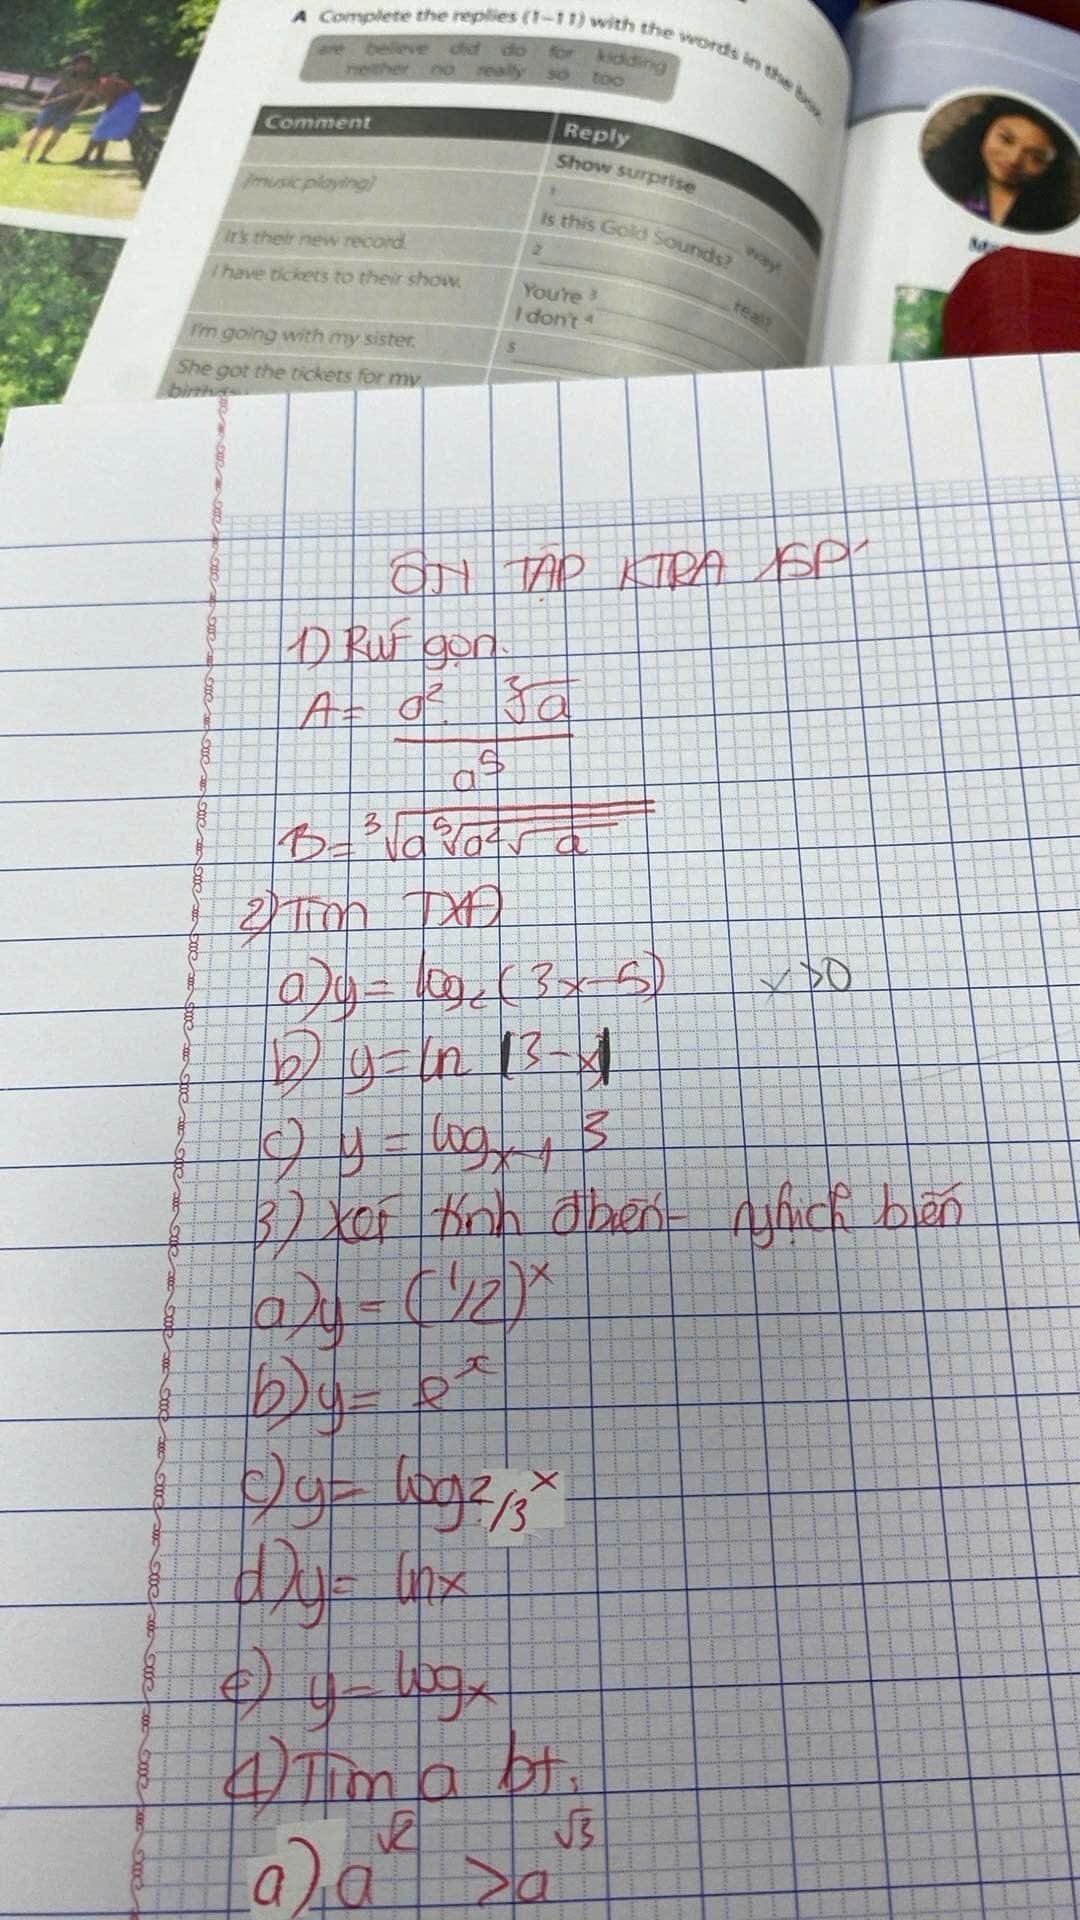 A Complete the replies (1–11) with the words in the box.
are believe did do for kidding
neither no really so too
Comment Reply
Show surprise
[music playing] 1
Is this Gold Sounds? way!
It's their new record. 2
real?
I have tickets to their show. You're 3
I don't 4
I'm going with my sister. 5
She got the tickets for my
birthday
ÔN TẬP KTRA 15P'
1) Rút gọn.
A = a². ∛a
a⁵
B = ∛a⁵√a²√a
2) Tìm TXĐ
a) y = log₂(3x-5) x>0
b) y = ln |3-x|
c) y = logₓ₋₁ 3
3) Xét tính đbiến- nghịch biến
a) y = (1/2)ˣ
b) y = eˣ
c) y = log 2/3 x
d) y = lnx
e) y = logx
4) Tìm a bt:
a) a^√2 > a^√3